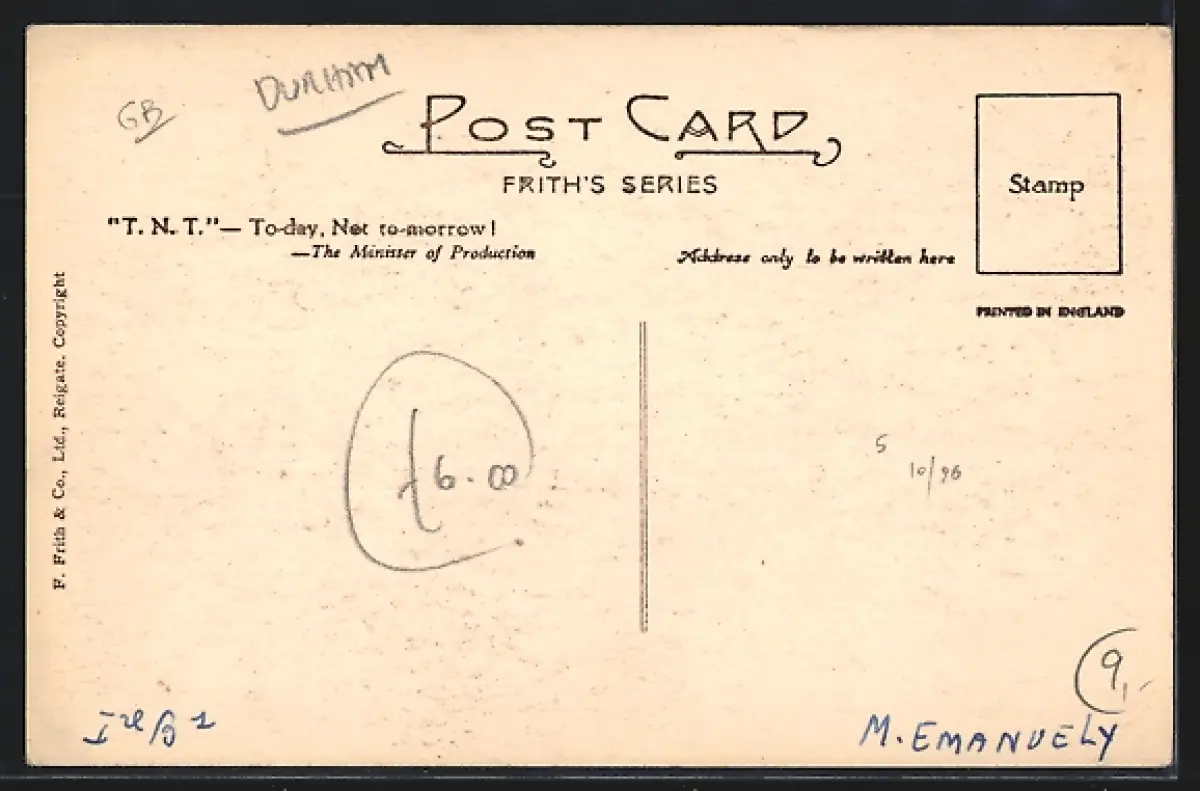 GB
DURHAM
POST CARD
FRITH'S SERIES
Stamp
"T. N. T."— To-day, Not to-morrow!
—The Minister of Production
Address only to be written here
PRINTED IN ENGLAND
F. Frith & Co., Ltd., Reigate. Copyright
£6.00
S
10/96
9,-
M. EMANUELY